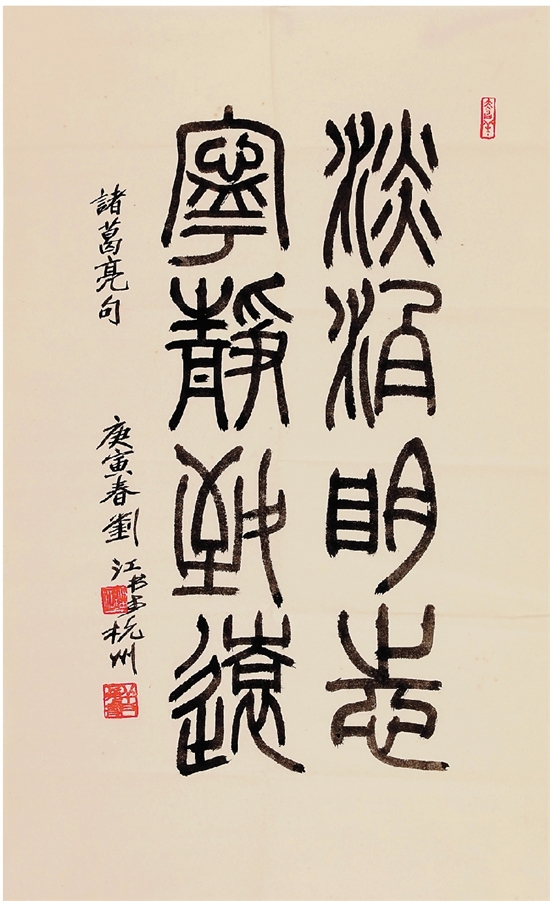 淡泊明志
寧靜致遠
諸葛亮句
庚寅春劉江书于杭州